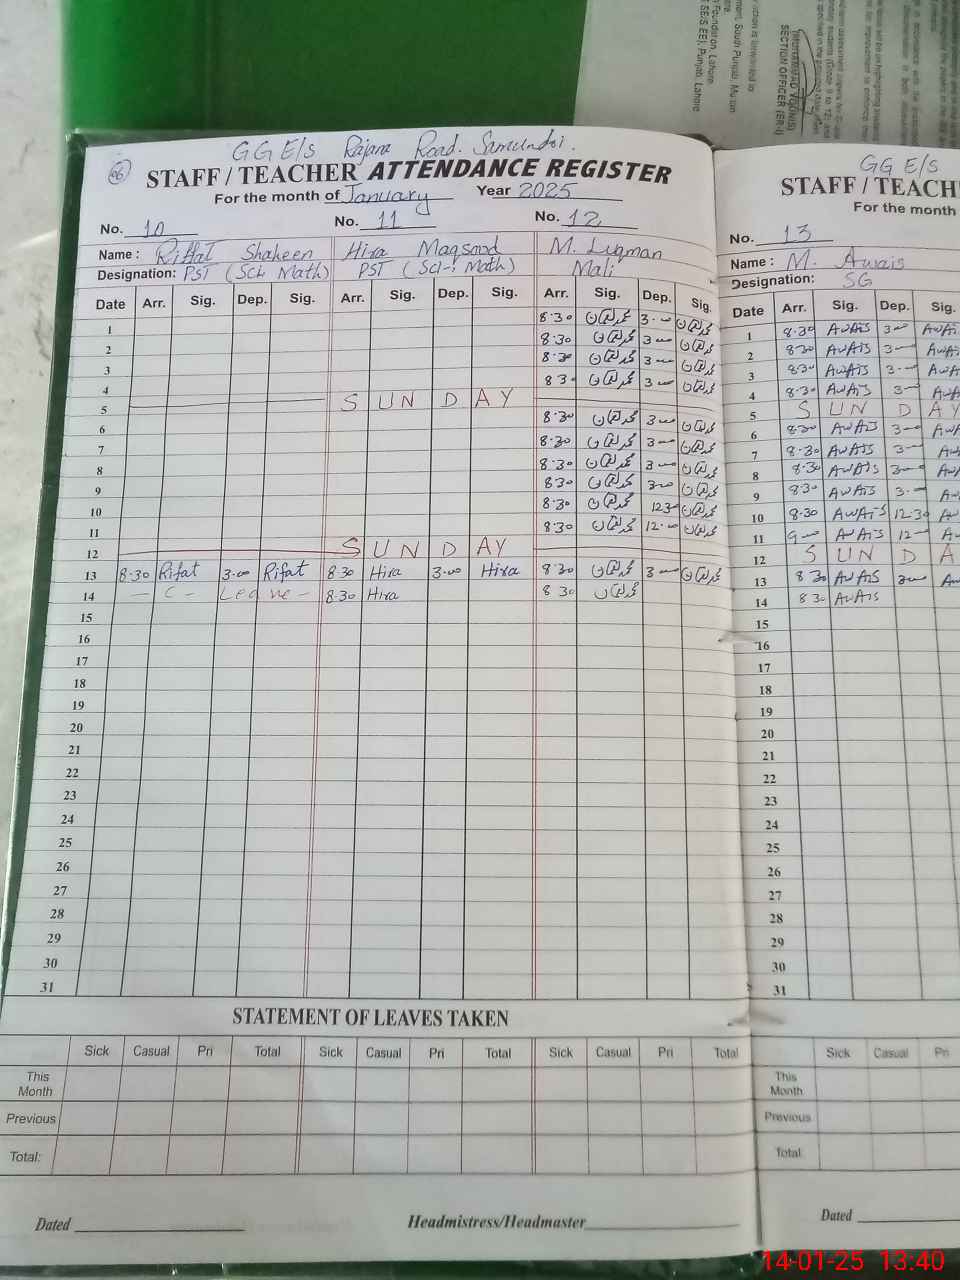 GG E/s Rajana Road. Samundri.
06
STAFF / TEACHER ATTENDANCE REGISTER
For the month of January Year 2025
No. 10 No. 11 No. 12
Name : Riffat Shaheen Hira Maqsood M. Luqman
Designation: PST (Sci Math) PST (Sci-Math) Mali
Date Arr. Sig. Dep. Sig. Arr. Sig. Dep. Sig. Arr. Sig. Dep. Sig.
1 8:30 محمد لقمان 3:00 محمد لقمان
2 8:30 محمد لقمان 3:00 محمد لقمان
3 8:30 محمد لقمان 3:00 محمد لقمان
4 8:30 محمد لقمان 3:00 محمد لقمان
5 SUNDAY
6 8:30 محمد لقمان 3:00 محمد لقمان
7 8:30 محمد لقمان 3:00 محمد لقمان
8 8:30 محمد لقمان 3:00 محمد لقمان
9 8:30 محمد لقمان 3:00 محمد لقمان
10 8:30 محمد لقمان 12:30 محمد لقمان
11 8:30 محمد لقمان 12:00 محمد لقمان
12 SUNDAY
13 8:30 Rifat 3:00 Rifat 8:30 Hira 3:00 Hira 8:30 محمد لقمان 3:00 محمد لقمان
14 - C - Leave - 8:30 Hira 8:30 محمد لقمان
15
16
17
18
19
20
21
22
23
24
25
26
27
28
29
30
31
STATEMENT OF LEAVES TAKEN
Sick Casual Pri Total Sick Casual Pri Total Sick Casual Pri Total
This Month
Previous
Total:
Dated Headmistress/Headmaster
GG E/s
STAFF / TEACH
For the month
No. 13
Name : M. Awais
Designation: SG
Date Arr. Sig. Dep. Sig.
1 8:30 AWAIS 3:00 AWAI
2 8:30 AWAIS 3:00 AWAI
3 8:30 AWAIS 3:00 AWA
4 8:30 AWAIS 3:00 AWA
5 SUNDAY
6 8:30 AWAIS 3:00 AWA
7 8:30 AWAIS 3:00 AW
8 8:30 AWAIS 3:00 AW
9 8:30 AWAIS 3:00 AW
10 8:30 AWAIS 12:30 AW
11 9:00 AWAIS 12:00 A
12 SUNDA
13 8:30 AWAIS 3:00 AW
14 8:30 AWAIS
15
16
17
18
19
20
21
22
23
24
25
26
27
28
29
30
31
Sick Casual Pri
This Month
Previous
Total
Dated
(MUHAMMAD YOUNIS)
SECTION OFFICER (ER-I)
Foundation, Lahore.
ment, South Punjab, Multan
Punjab, Lahore
14-01-25 13:40